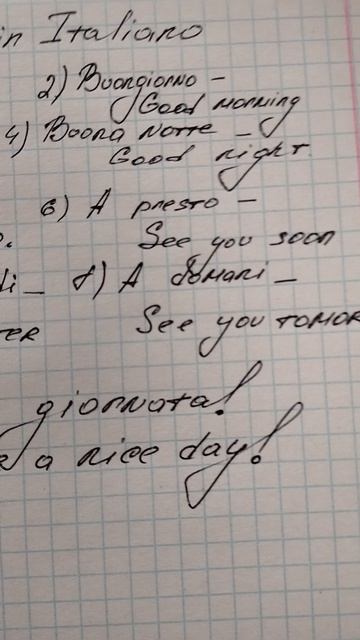 in Italiano
2) Buongiorno -
Good morning
4) Buona notte -
Good night
6) A presto -
See you soon
di - 8) A domani -
ter See you tomor
giornata!
e a nice day!